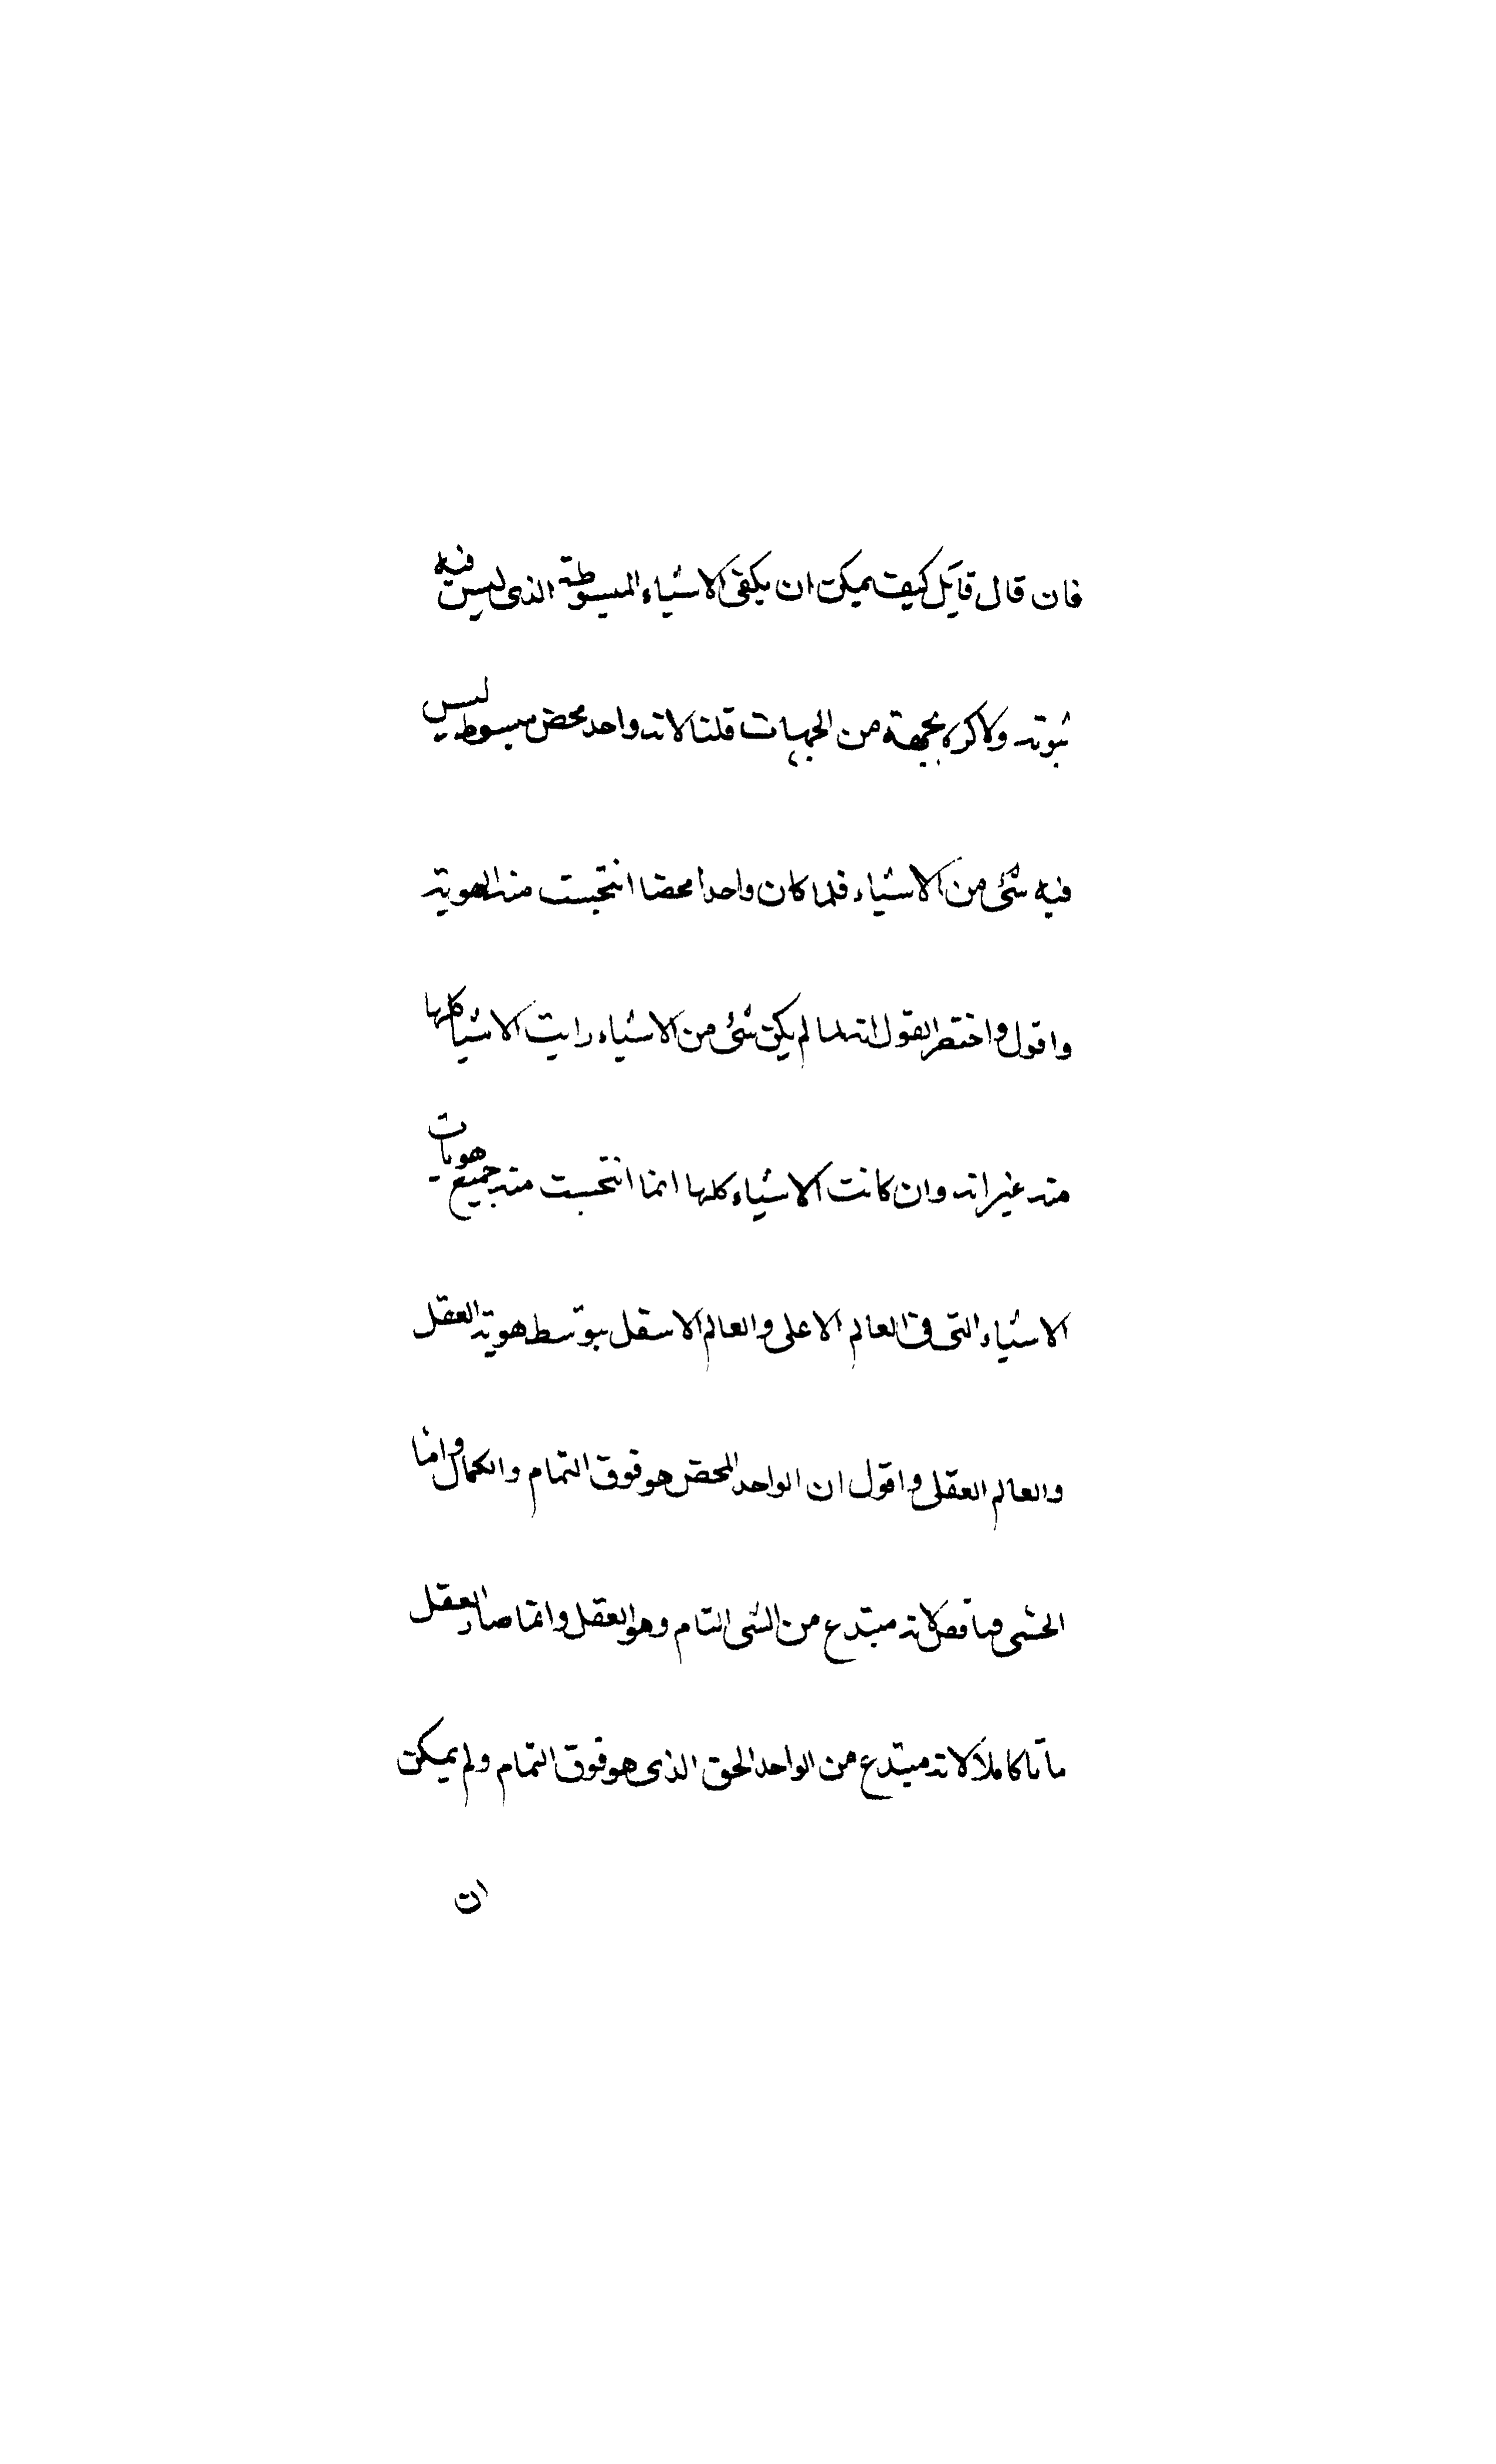 فان قال قايل كيف يمكن ان يكفى الاشياء المبسوطة الذى ليس فيه
ثبوته ولا كره بجهة من الجهات قلنا لانه واحد محض مبسوط ليس
فيه شئ من الاشياء فلما كان واحدا محضا انتجست منه الهوية
واقول واختصر القول انه لما لم يكن شئ من الاشياء رايت الاشيا كلها
منه غير انه وان كانت الاشياء كلها انما انتجست منه جميع هويات
الاشياء التى فى العالم الاعلى والعالم الاسفل بتوسط هوية العقل
والعالم العقلى واقول ان الواحد المحض هو فوق التمام والكمال واما
الحسى فناقص لانه مبتدع من الشى التام وهو العقل وانما صار العقل
تاما كاملا لانه مبتدع من الواحد الحق الذى هو فوق التمام ولم يمكن
ان